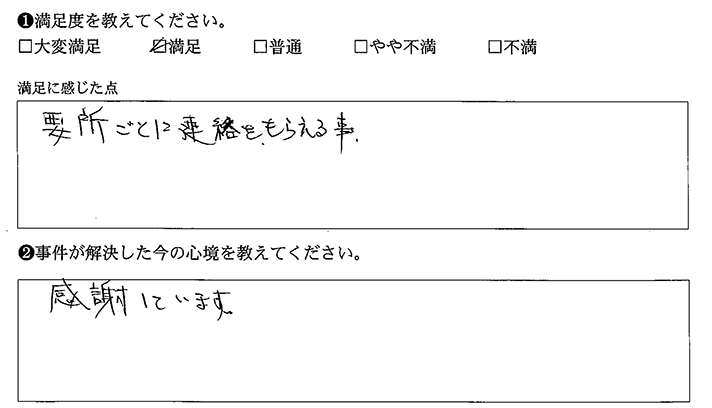 ❶満足度を教えてください。
□大変満足 ☑満足 □普通 □やや不満 □不満
満足に感じた点
要所ごとに連絡をもらえる事.
❷事件が解決した今の心境を教えてください。
感謝しています。